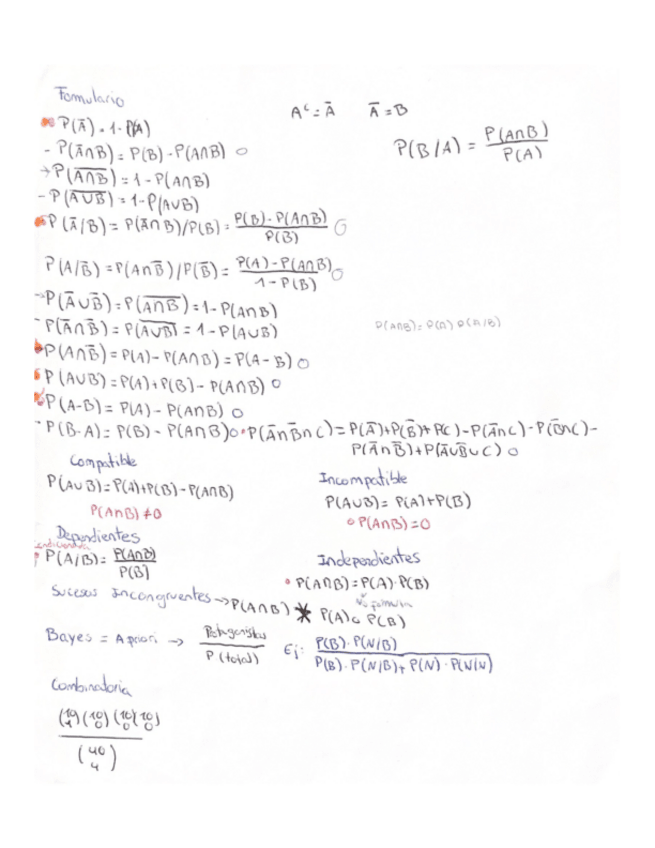 Formulario
Aᶜ = Ā Ā = B
P(Ā) = 1 - P(A)
P(B/A) = P(A∩B) / P(A)
- P(Ā∩B) = P(B) - P(A∩B)
→ P(A∩B)̅ = 1 - P(A∩B)
- P(A∪B)̅ = 1 - P(A∪B)
P(Ā/B) = P(Ā∩B)/P(B) = P(B) - P(A∩B) / P(B)
P(A/B̄) = P(A∩B̄)/P(B̄) = P(A) - P(A∩B) / 1 - P(B)
- P(Ā∪B̄) = P(A∩B)̅ = 1 - P(A∩B)
- P(Ā∩B̄) = P(A∪B)̅ = 1 - P(A∪B)
P(A∩B) = P(A) P(A/B)
P(A∩B̄) = P(A) - P(A∩B) = P(A - B)
P(A∪B) = P(A) + P(B) - P(A∩B)
P(A-B) = P(A) - P(A∩B)
- P(B-A) = P(B) - P(A∩B) • P(Ā∩B̄∩C) = P(Ā) + P(B̄) + P(C) - P(Ā∩C) - P(B̄∩C) -
P(Ā∩B̄) + P(Ā∪B̄∪C)
Compatible
P(A∪B) = P(A) + P(B) - P(A∩B)
P(A∩B) ≠ 0
Incompatible
P(A∪B) = P(A) + P(B)
P(A∩B) = 0
Dependientes
P(A/B) = P(A∩B) / P(B)
Independientes
• P(A∩B) = P(A) · P(B)
Sucesos Incongruentes → P(A∩B) P(A) o P(B)
Bayes = A priori → Protagonistas / P(total) Ej: P(B) · P(N/B) / P(B) · P(N/B) + P(N) · P(N/N)
Combinatoria
(10 4) (10 0) (10 0) (10 0)
(40 4)